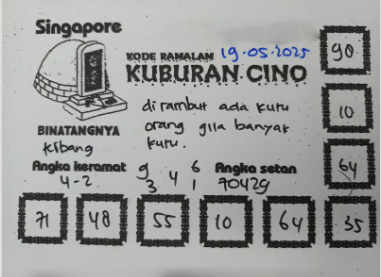 Singapore
KODE RAMALAN 19-05-2025
KUBURAN CINO
90
10
64
di rambut ada kutu
orang gila banyak
kutu.
BINATANGNYA
Kibang
Angka keramat
4-2
9 6
3 4 1
Angka setan
70429
71 48 55 10 64 35